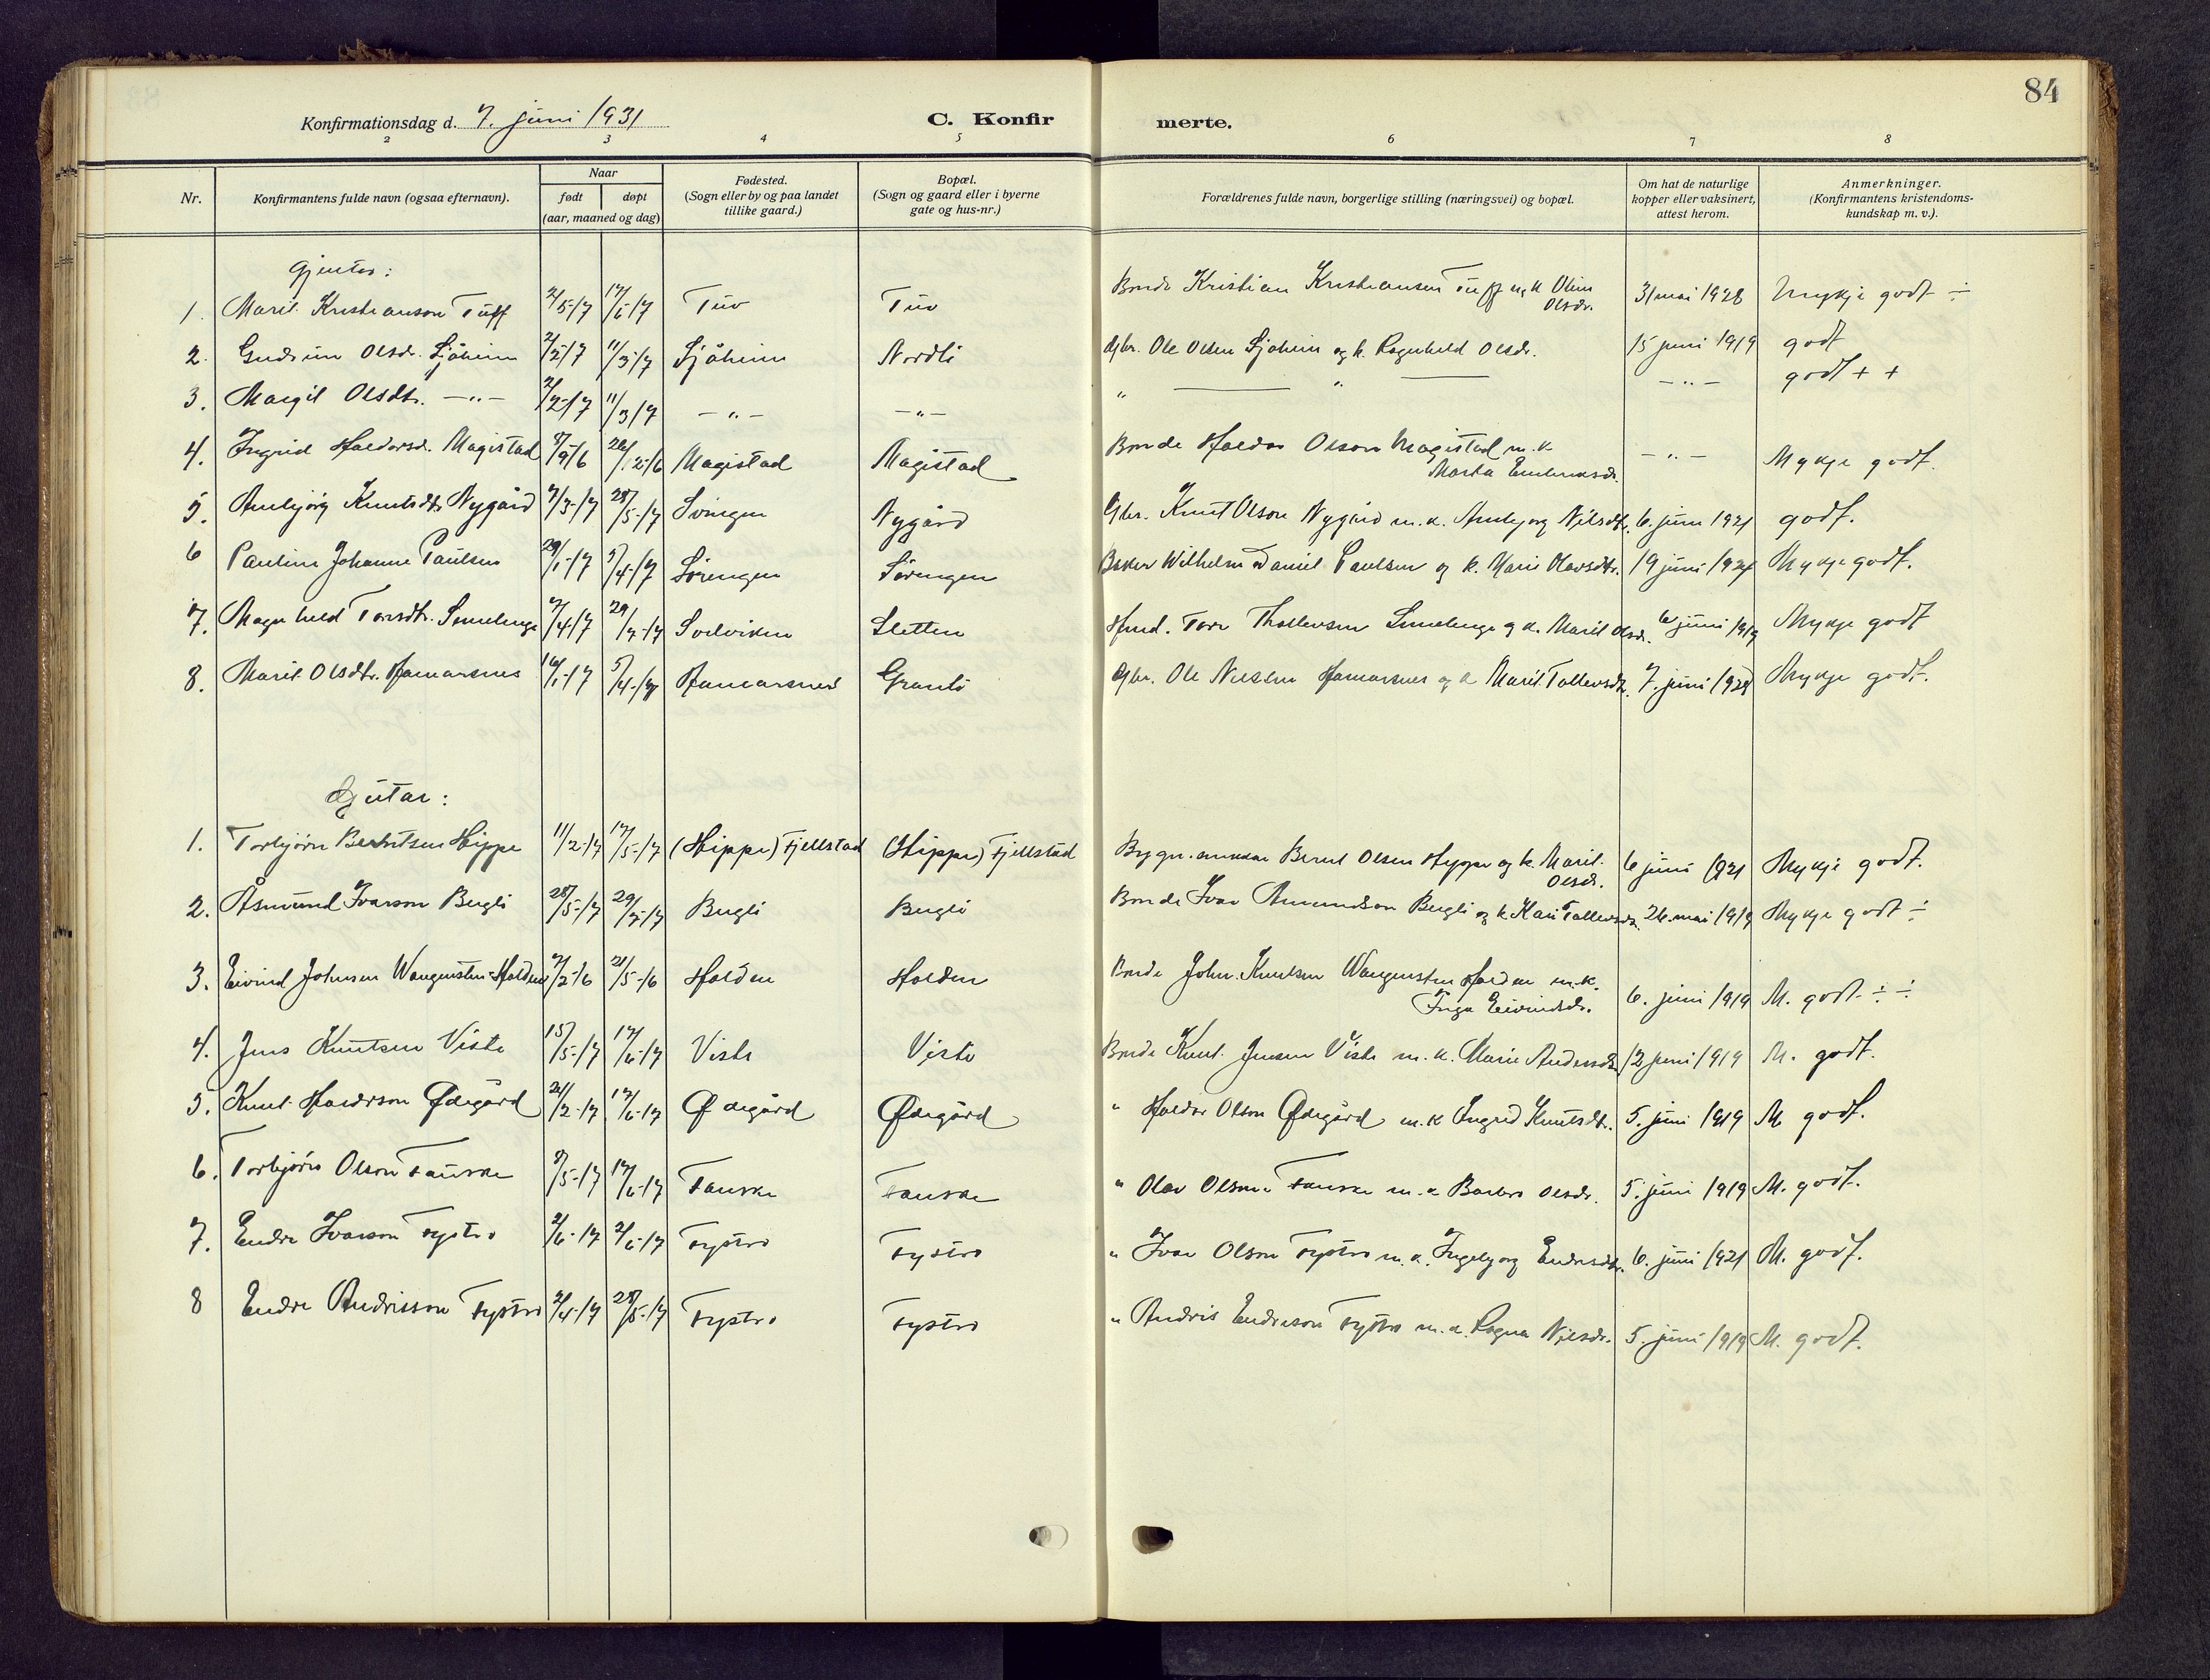 84
Konfirmationsdag d. 7. juni 1931
C. Konfirmerte.
2 3 4 5 6 7 8
Nr.
Konfirmantens fulde navn (ogsaa efternavn).
Naar
født døpt
(aar, maaned og dag)
Fødested.
(Sogn eller by og paa landet
tillike gaard.)
Bopæl.
(Sogn og gaard eller i byerne
gate og hus-nr.)
Forældrenes fulde navn, borgerlige stilling (næringsvei) og bopæl.
Om hat de naturlige
kopper eller vaksinert,
attest herom.
Anmerkninger.
(Konfirmantens kristendoms-
kundskap m. v.).
Gjentor:
1. Marit Kristianson Tuff 2/5-17 17/6-17 Tuv Tuv Bonde Kristian Kristiansen Tuff og k Oline Olsdr. 31 mai 1928 Mykje godt ÷
2. Gudrun Olsdr. Sjåheim 2/2-17 11/3-17 Sjåheim Nordli Gbr. Ole Olsen Sjåheim og k. Ragnhild Olsdr. 15 juni 1919 godt
3. Margit Olsdtr. -"- 2/2-17 11/3-17 -"- -"- " " -"- godt + +
4. Ingrid Haldorsd. Magistad 7/9-16 26/12-16 Magistad Magistad Bonde Haldor Olson Magistad m. k Marta -"- Mykje godt.
5. Ambjørg Knutsdtr Nygård 7/3-17 28/5-17 Svingen Nygård Gbr. Knut Olson Nygård m. k. Ambjørg Nilsdt. 6. juni 1921 godt.
6 Pauline Johanne Paulsen 29/1-17 5/4-17 Sørengen Sørengen Baker Wilhelm Daniel Paulsen og k. Marie Olavsdtr. 19 juni 1924 Mykje godt.
7. Magnhild Toresdtr. Semelenge 7/4-17 29/7-17 Solviken Sletten Tore Thollevsen Semelenge og k. Marit Olsdr. 6 juni 1919 Mykje godt
8. Marit Olsdtr. Hamarsnes 16/1-17 5/4-17 Hamarsnes Granli Gbr. Ole Nielsen Hamarsnes og k Marit Tollevsdtr. 7. juni 1928 Mykje godt.
Gutar:
1. Torbjørn Berntsen Hippe 11/2-17 17/5-17 (Hippe) Fjellstad (Hippe) Fjellstad Bernt Olsen Hippe og k. Marit Olsdr. 6 juni 1921 Mykje godt.
2. Åsmund Ivarson Bergli 28/5-17 29/7-17 Bergli Bergli Bonde Ivar Amundson Bergli og k. Kari Tollevsdtr. 26. mai 1919 Mykje godt ÷
3. Eivind Johnsen Wangensten-Holden 7/2-16 21/5-16 Holden Holden Bonde John Knutsen Wangensten Holden m. k. Inga Eivindsdr. 6. juni 1919 M. godt. ÷ ÷
4. Jens Knutsen Viste 15/5-17 17/6-17 Viste Viste Bonde Knut Jensen Viste m. k. Marie Andersdtr 12 juni 1919 M. godt.
5. Knut Haldorson Ødegård 21/2-17 17/6-17 Ødegård Ødegård " Haldor Olson Ødegård m. k Ingrid Knutsdt. 5. juni 1919 M godt.
6. Torbjørn Olson Fauske 9/5-17 17/6-17 Fauske Fauske " Olav Olson Fauske m. k Barbro Olsdr. 5. juni 1919 M. godt.
7. Endre Ivarson Fystro 2/6-17 2/6-17 Fystro Fystro " Ivar Olson Fystro m. k. Ingebjørg Endresdtr. 6. juni 1921 M. godt.
8 Endre Andrisson Fystro 2/4-17 28/5-17 Fystro Fystro " Andris Endreson Fystro m. k. Ragna Nilsdr. 5. juni 1919 M. godt.